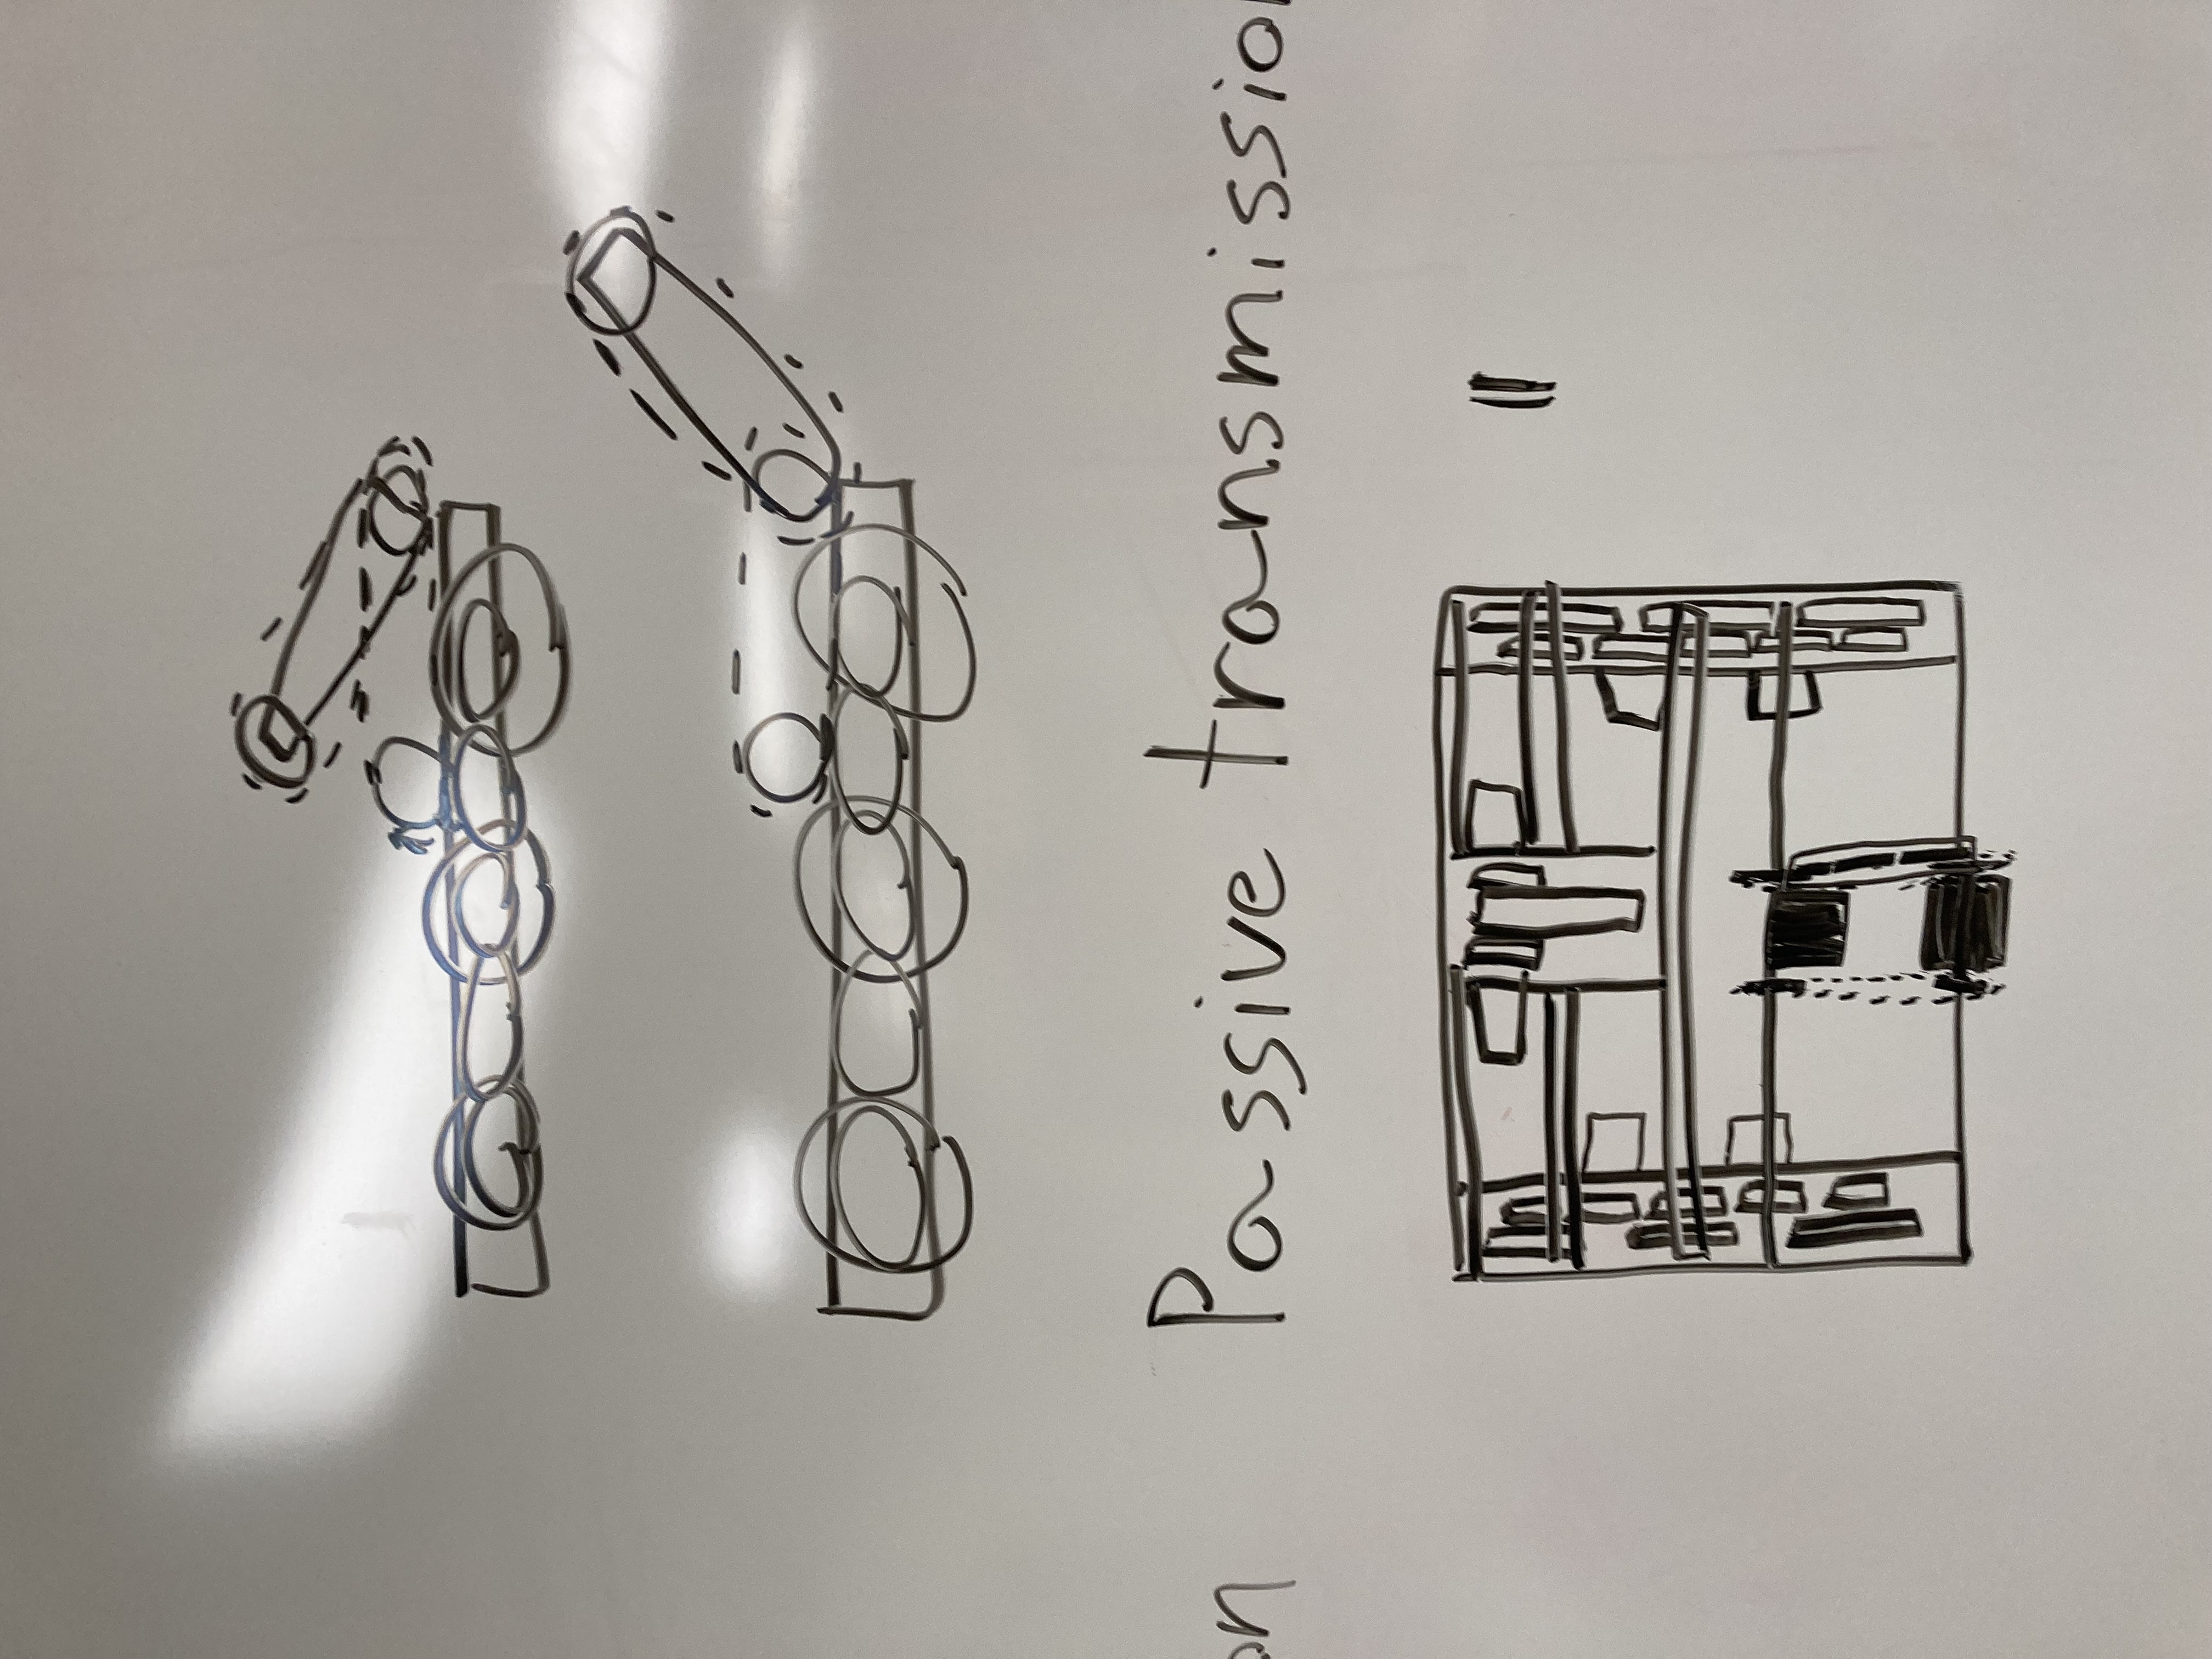 on Passive transmissio